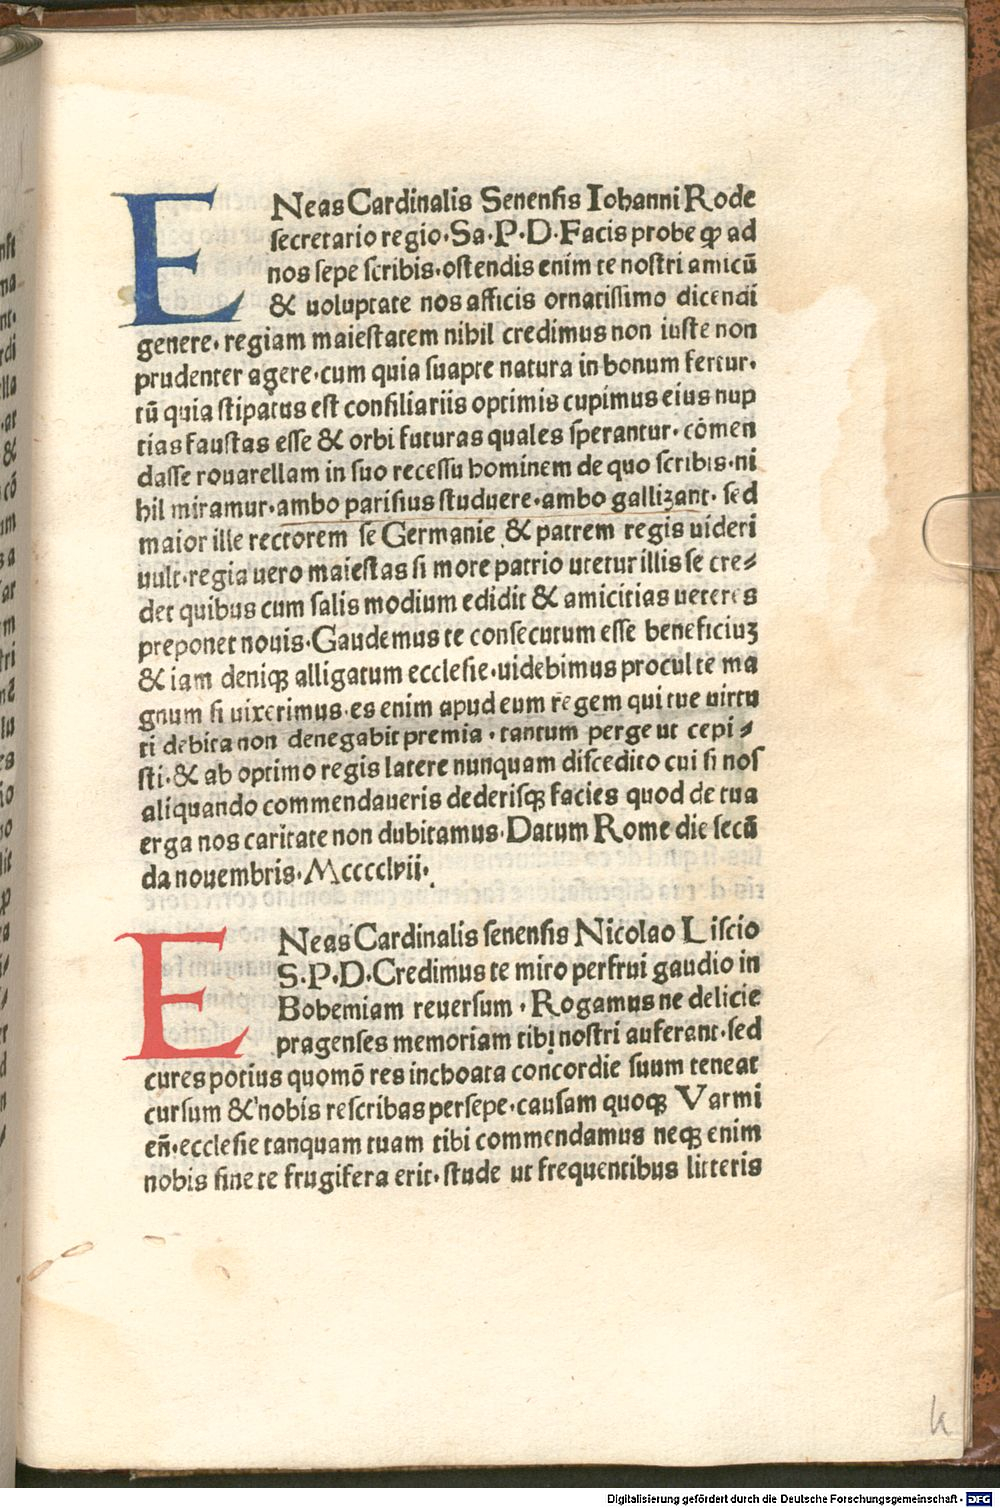 ENeas Cardinalis Senensis Iohanni Rode
secretario regio·Sa·P·D·Facis probe ꝙ ad
nos sepe scribis·ostendis enim te nostri amicū
& uoluptate nos afficis ornatissimo dicendi
genere·regiam maiestatem nihil credimus non iuste non
prudenter agere·cum quia suapte natura in bonum fertur·
tū quia stipatus est consiliariis optimis cupimus eius nup
tias faustas esse & orbi futuras quales sperantur·cōmen
dasse rouarellam in suo recessu hominem de quo scribis·ni
hil miramur·ambo parisius studuere·ambo gallizant·sed
maior ille rectorem se Germanie & patrem regis uideri
uult·regia uero maiestas si more patrio utetur illis se cre⸗
det quibus cum salis modium edidit & amicitias ueteres
preponet nouis·Gaudemus te consecutum esse beneficiuꝫ
& iam deniqꝫ alligatum ecclesie·uidebimus procul te ma
gnum si uixerimus·es enim apud eum regem qui tue uirtu
ti debita non denegabit premia·tantum perge ut cepi⸗
sti·& ab optimo regis latere nunquam discedito cui si nos
aliquando commendaueris dederisqꝫ facies quod de tua
erga nos caritate non dubitamus·Datum Rome die secū
da nouembris·Mcccclvii·
ENeas Cardinalis senensis Nicolao Liscio
S·P·D·Credimus te miro perfrui gaudio in
Bohemiam reuersum·Rogamus ne delicie
pragenses memoriam tibi nostri auferant·sed
cures potius quomō res inchoata concordie suum teneat
cursum & nobis rescribas persepe·causam quoqꝫ Varmi
eñ·ecclesie tanquam tuam tibi commendamus neqꝫ enim
nobis sine te frugifera erit·stude ut frequentibus litteris
k
Digitalisierung gefördert durch die Deutsche Forschungsgemeinschaft - DFG